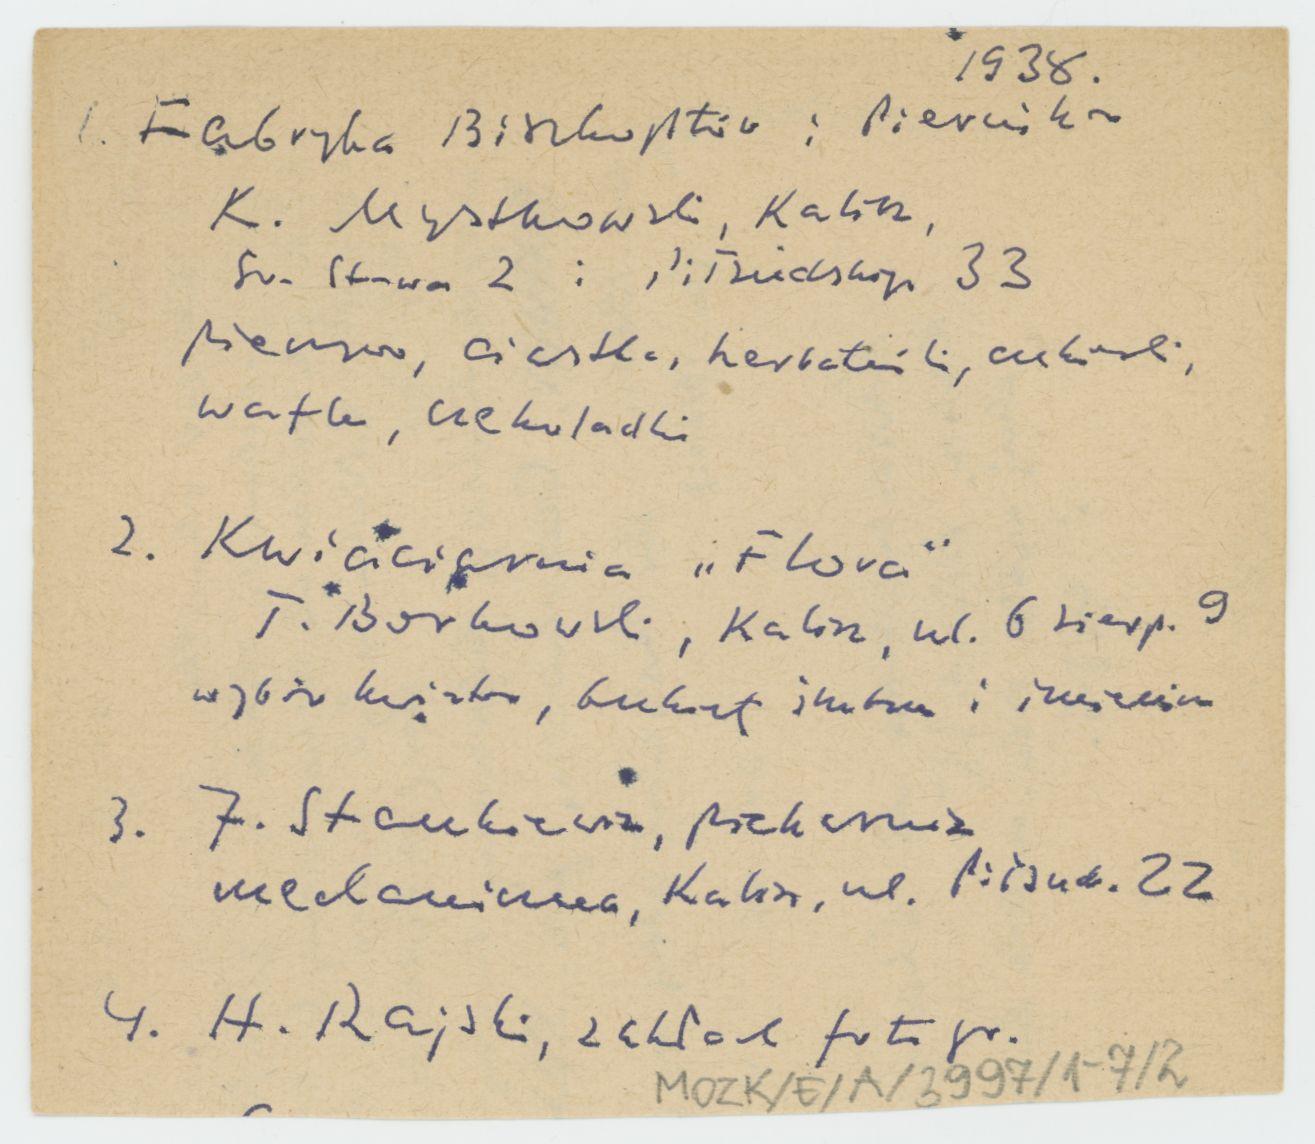 1938.
1. Fabryka Biszkoptów i Pierników
K. Mystkowski, Kalisz,
Św. Stawa 2 i Piłsudskiego 33
pieczywo, ciastka, herbatniki, cukierki,
wafle, czekoladki
2. Kwiaciarnia „Flora”
T. Borkowski, Kalisz, ul. 6 sierp. 9
wybór kwiatów, bukiety ślubne i imienin
3. J. Stankiewicz, piekarnia
mechaniczna, Kalisz, ul. Piłsud. 22
4. H. Rajski, zakład fotogr.
MOZK/E/A/3997/1-7/2